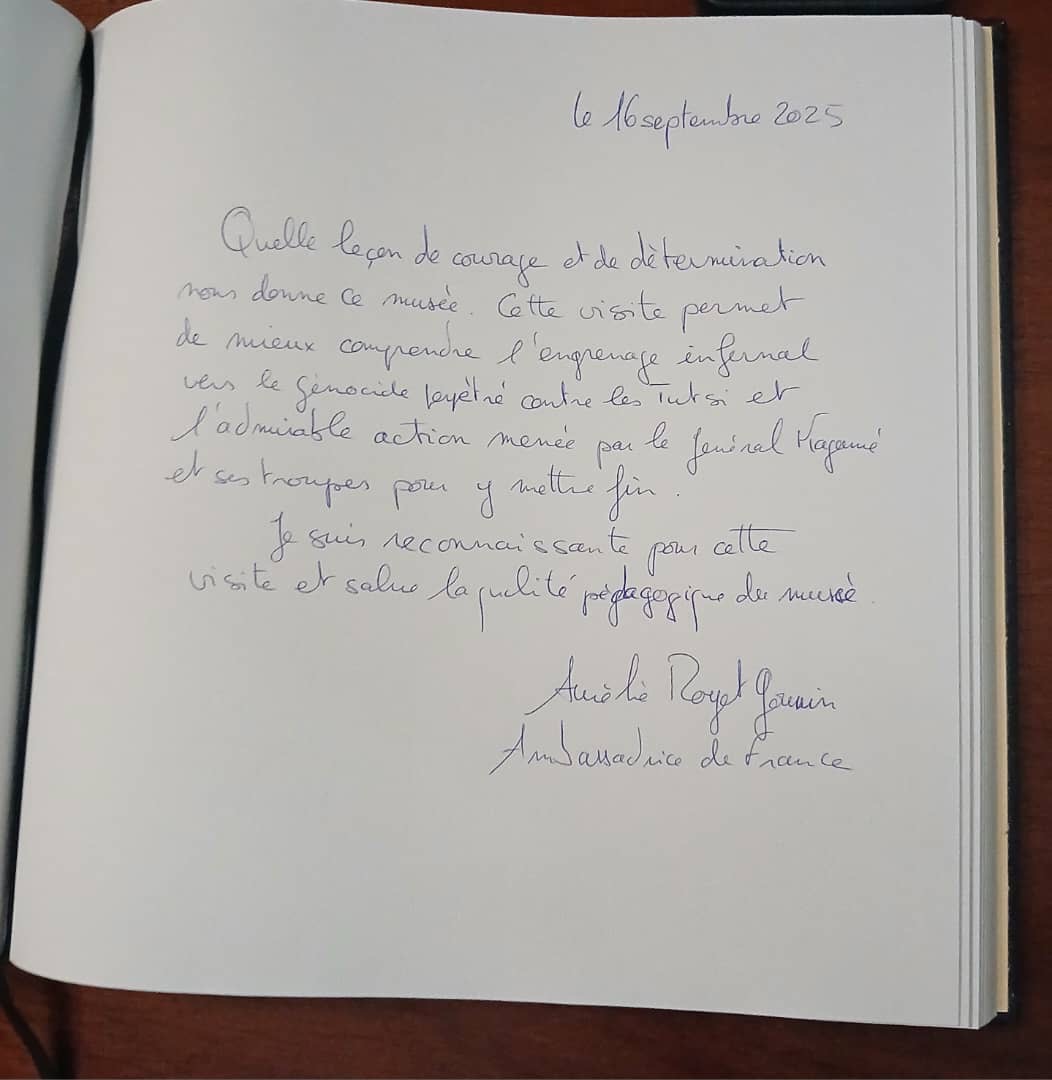 le 16 septembre 2025
Quelle leçon de courage et de détermination
nous donne ce musée. Cette visite permet
de mieux comprendre l'engrenage infernal
vers le génocide perpétré contre les Tutsi et
l'admirable action menée par le général Kagamé
et ses troupes pour y mettre fin.
Je suis reconnaissante pour cette
visite et salue la qualité pédagogique du musée.
Aurélie Royet Gounin
Ambassadrice de France